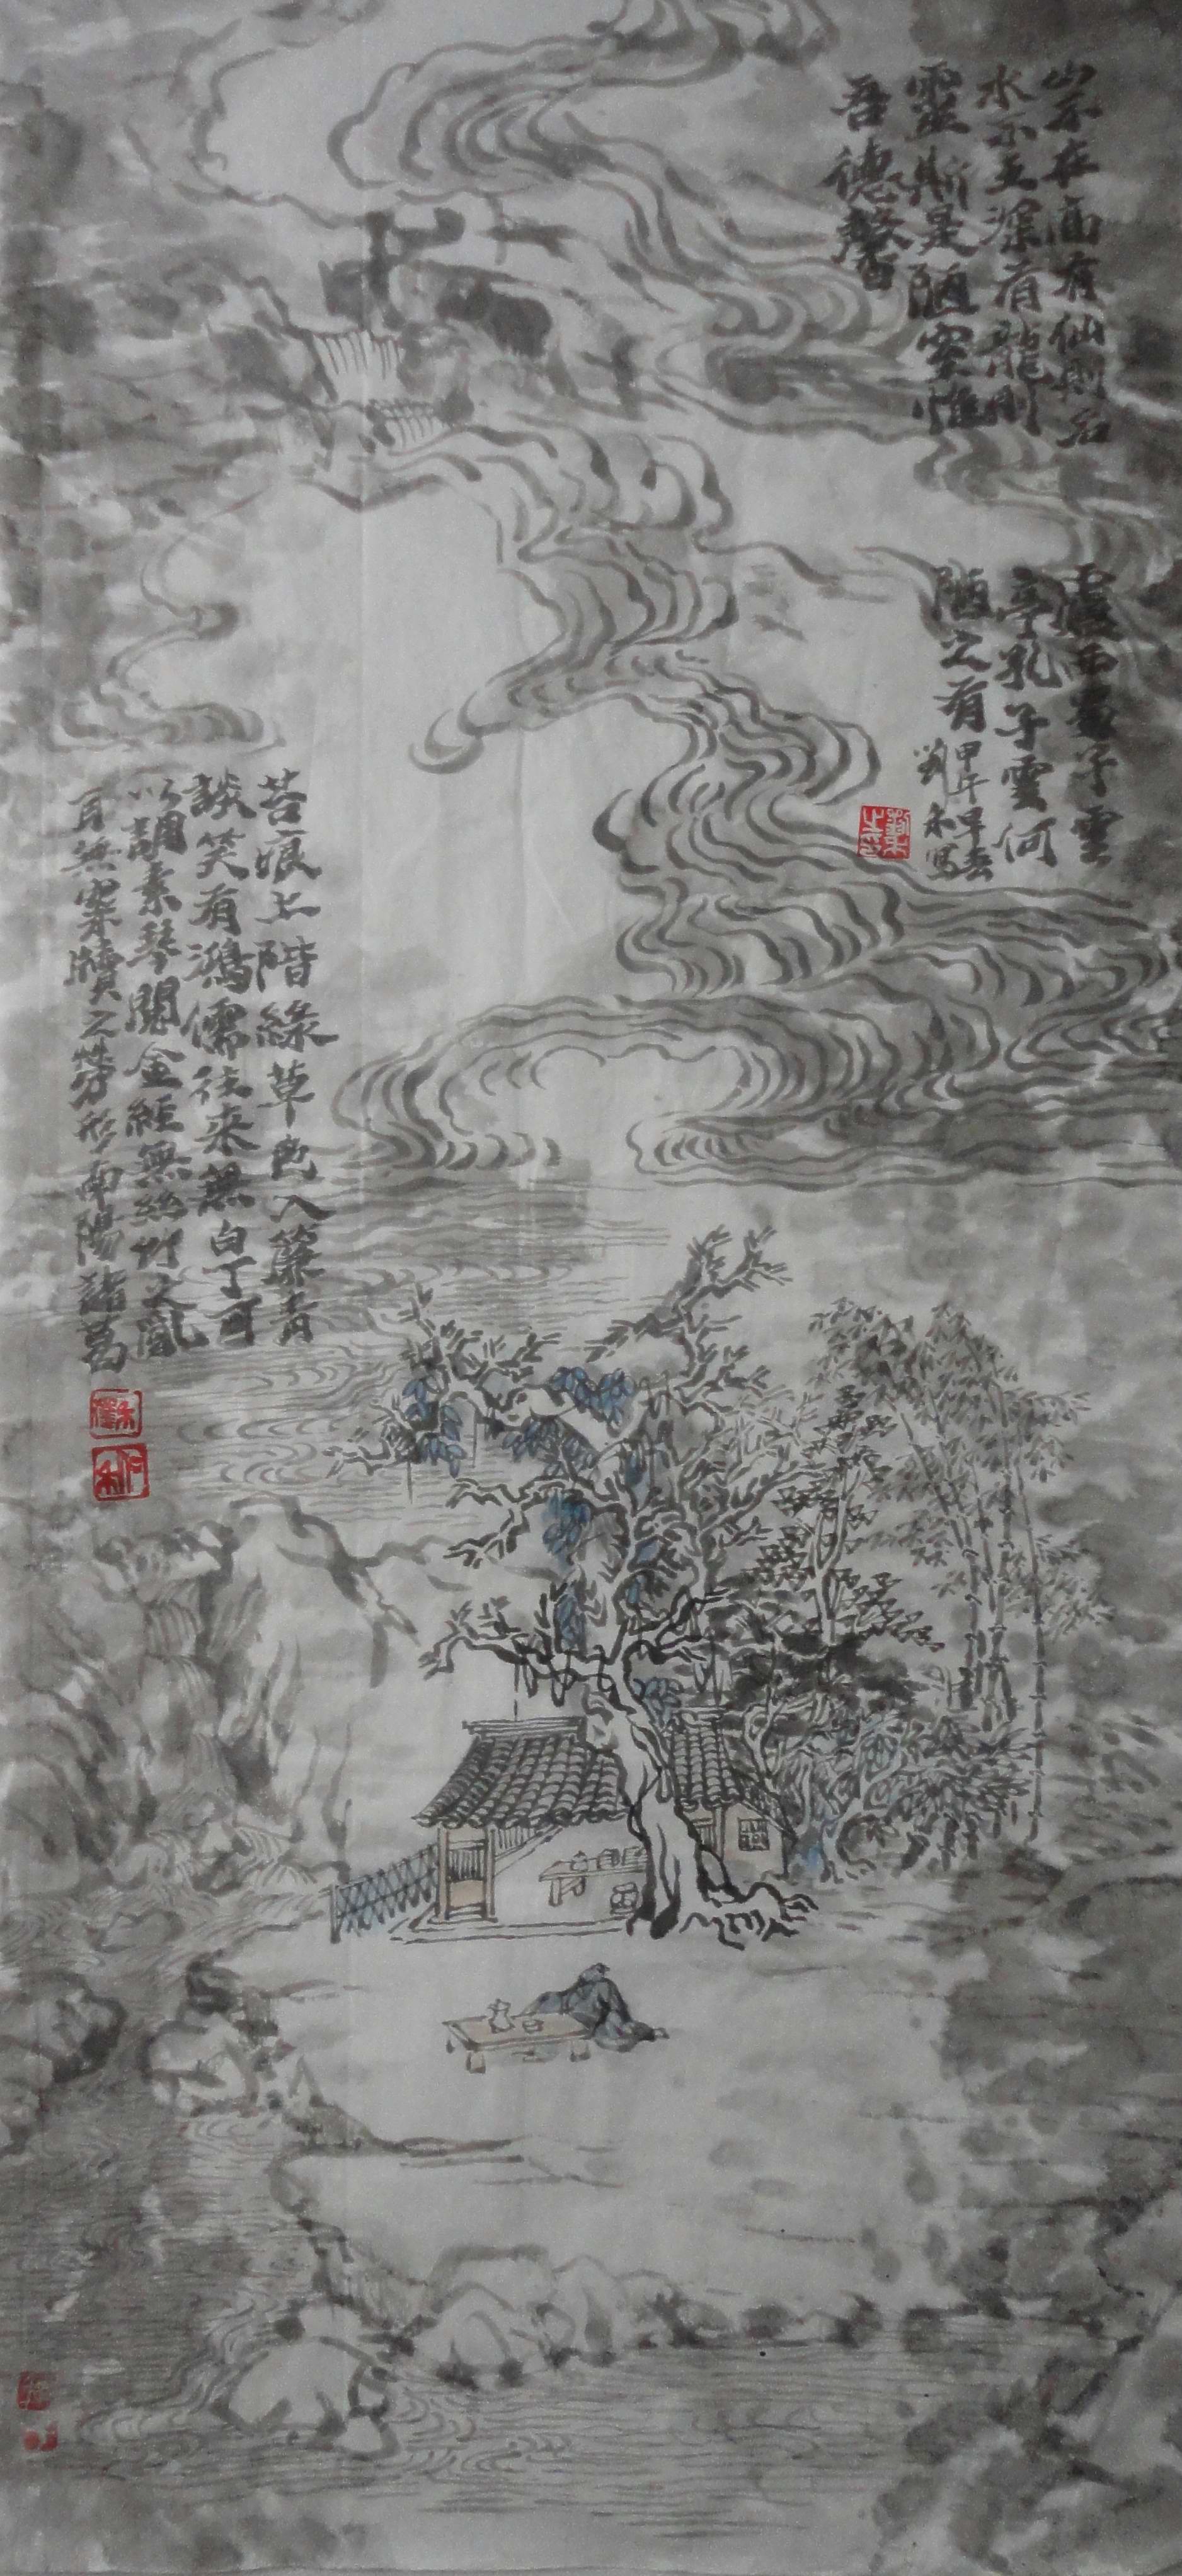 山不在高有仙則名
水不在深有龍則
靈斯是陋室惟
吾德馨
苔痕上階緑草色入簾青
談笑有鴻儒往來無白丁可
以調素琴閱金經無絲竹之亂
耳無案牘之勞形南陽諸葛
廬西蜀子雲
亭孔子雲何
陋之有
甲午早春
劉永寫